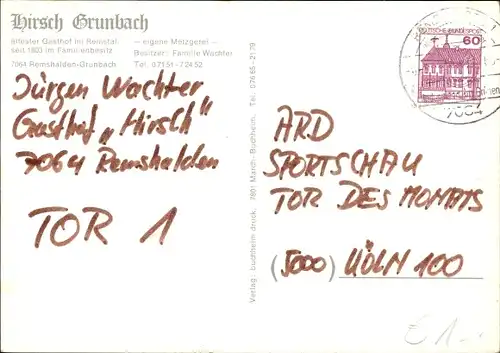 Hirsch Grunbach
ältester Gasthof im Remstal
seit 1803 im Familienbesitz
7064 Remshalden-Grunbach
– eigene Metzgerei –
Besitzer: Familie Wachter
Tel. 07151-72452
Jürgen Wachter
Gasthof „Hirsch"
7064 Remshalden
TOR 1
Verlag: buchheim druck, 7801 March-Buchheim, Tel. 07665-2179
DEUTSCHE BUNDESPOST
60
7064
ARD
SPORTSCHAU
TOR DES MONATS
(5000) KÖLN 100
€ 1.-